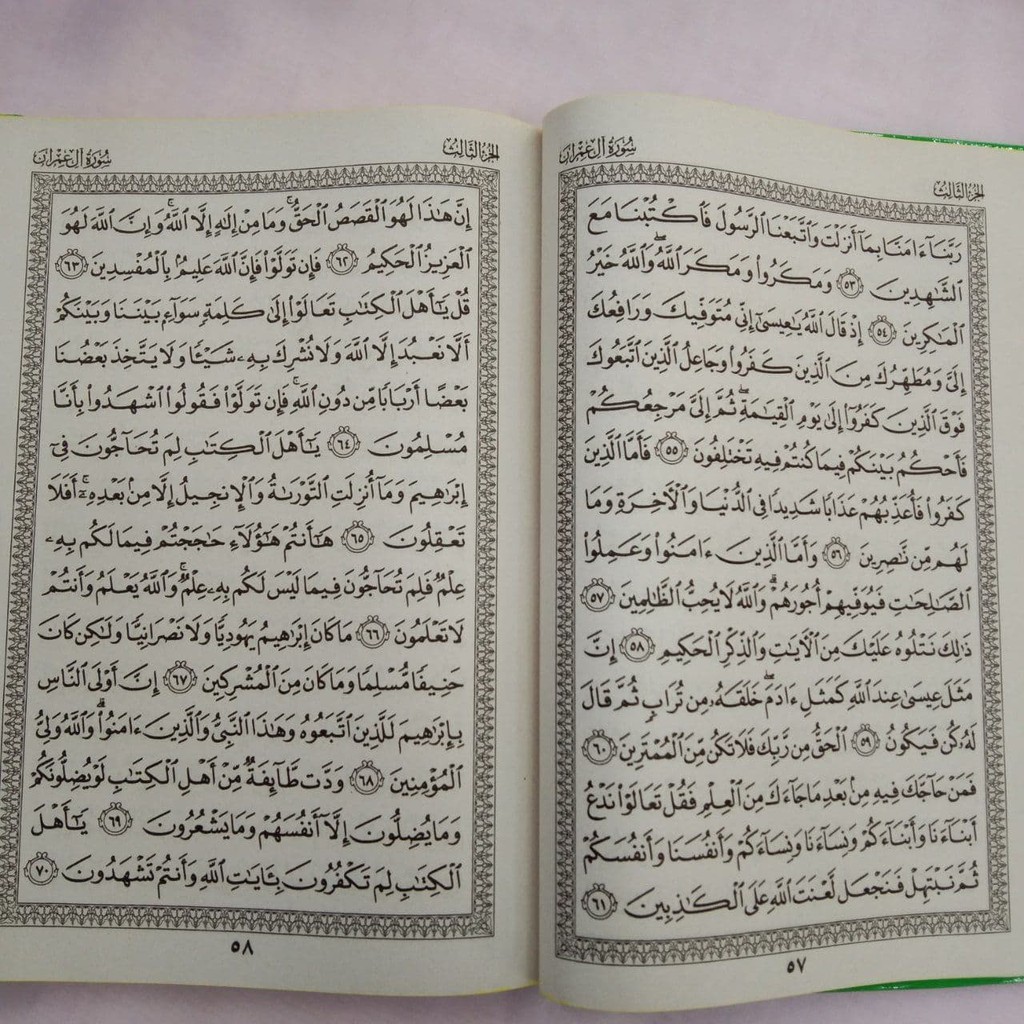 سُورَةُ آلِ عِمْرَان
الجُزْءُ الثَّالِثُ
رَبَّنَآ ءَامَنَّا بِمَآ أَنزَلْتَ وَٱتَّبَعْنَا ٱلرَّسُولَ فَٱكْتُبْنَا مَعَ
ٱلشَّٰهِدِينَ ٥٣ وَمَكَرُوا۟ وَمَكَرَ ٱللَّهُ ۖ وَٱللَّهُ خَيْرُ
ٱلْمَٰكِرِينَ ٥٤ إِذْ قَالَ ٱللَّهُ يَٰعِيسَىٰٓ إِنِّى مُتَوَفِّيكَ وَرَافِعُكَ
إِلَىَّ وَمُطَهِّرُكَ مِنَ ٱلَّذِينَ كَفَرُوا۟ وَجَاعِلُ ٱلَّذِينَ ٱتَّبَعُوكَ
فَوْقَ ٱلَّذِينَ كَفَرُوٓا۟ إِلَىٰ يَوْمِ ٱلْقِيَٰمَةِ ۖ ثُمَّ إِلَىَّ مَرْجِعُكُمْ
فَأَحْكُمُ بَيْنَكُمْ فِيمَا كُنتُمْ فِيهِ تَخْتَلِفُونَ ٥٥ فَأَمَّا ٱلَّذِينَ
كَفَرُوا۟ فَأُعَذِّبُهُمْ عَذَابًا شَدِيدًا فِى ٱلدُّنْيَا وَٱلْءَاخِرَةِ وَمَا
لَهُم مِّن نَّٰصِرِينَ ٥٦ وَأَمَّا ٱلَّذِينَ ءَامَنُوا۟ وَعَمِلُوا۟
ٱلصَّٰلِحَٰتِ فَيُوَفِّيهِمْ أُجُورَهُمْ ۗ وَٱللَّهُ لَا يُحِبُّ ٱلظَّٰلِمِينَ ٥٧
ذَٰلِكَ نَتْلُوهُ عَلَيْكَ مِنَ ٱلْءَايَٰتِ وَٱلذِّكْرِ ٱلْحَكِيمِ ٥٨ إِنَّ
مَثَلَ عِيسَىٰ عِندَ ٱللَّهِ كَمَثَلِ ءَادَمَ ۖ خَلَقَهُۥ مِن تُرَابٍ ثُمَّ قَالَ
لَهُۥ كُن فَيَكُونُ ٥٩ ٱلْحَقُّ مِن رَّبِّكَ فَلَا تَكُن مِّنَ ٱلْمُمْتَرِينَ ٦٠
فَمَنْ حَآجَّكَ فِيهِ مِنۢ بَعْدِ مَا جَآءَكَ مِنَ ٱلْعِلْمِ فَقُلْ تَعَالَوْا۟ نَدْعُ
أَبْنَآءَنَا وَأَبْنَآءَكُمْ وَنِسَآءَنَا وَنِسَآءَكُمْ وَأَنفُسَنَا وَأَنفُسَكُمْ
ثُمَّ نَبْتَهِلْ فَنَجْعَل لَّعْنَتَ ٱللَّهِ عَلَى ٱلْكَٰذِبِينَ ٦١
٥٧
الجُزْءُ الثَّالِثُ
سُورَةُ آلِ عِمْرَان
إِنَّ هَٰذَا لَهُوَ ٱلْقَصَصُ ٱلْحَقُّ ۚ وَمَا مِنْ إِلَٰهٍ إِلَّا ٱللَّهُ ۚ وَإِنَّ ٱللَّهَ لَهُوَ
ٱلْعَزِيزُ ٱلْحَكِيمُ ٦٢ فَإِن تَوَلَّوْا۟ فَإِنَّ ٱللَّهَ عَلِيمٌۢ بِٱلْمُفْسِدِينَ ٦٣
قُلْ يَٰٓأَهْلَ ٱلْكِتَٰبِ تَعَالَوْا۟ إِلَىٰ كَلِمَةٍ سَوَآءٍۭ بَيْنَنَا وَبَيْنَكُمْ
أَلَّا نَعْبُدَ إِلَّا ٱللَّهَ وَلَا نُشْرِكَ بِهِۦ شَيْـًٔا وَلَا يَتَّخِذَ بَعْضُنَا
بَعْضًا أَرْبَابًا مِّن دُونِ ٱللَّهِ ۚ فَإِن تَوَلَّوْا۟ فَقُولُوا۟ ٱشْهَدُوا۟ بِأَنَّا
مُسْلِمُونَ ٦٤ يَٰٓأَهْلَ ٱلْكِتَٰبِ لِمَ تُحَآجُّونَ فِىٓ
إِبْرَٰهِيمَ وَمَآ أُنزِلَتِ ٱلتَّوْرَىٰةُ وَٱلْإِنجِيلُ إِلَّا مِنۢ بَعْدِهِۦٓ ۚ أَفَلَا
تَعْقِلُونَ ٦٥ هَٰٓأَنتُمْ هَٰٓؤُلَآءِ حَٰجَجْتُمْ فِيمَا لَكُم بِهِۦ
عِلْمٌ فَلِمَ تُحَآجُّونَ فِيمَا لَيْسَ لَكُم بِهِۦ عِلْمٌ ۚ وَٱللَّهُ يَعْلَمُ وَأَنتُمْ
لَا تَعْلَمُونَ ٦٦ مَا كَانَ إِبْرَٰهِيمُ يَهُودِيًّا وَلَا نَصْرَانِيًّا وَلَٰكِن كَانَ
حَنِيفًا مُّسْلِمًا وَمَا كَانَ مِنَ ٱلْمُشْرِكِينَ ٦٧ إِنَّ أَوْلَى ٱلنَّاسِ
بِإِبْرَٰهِيمَ لَلَّذِينَ ٱتَّبَعُوهُ وَهَٰذَا ٱلنَّبِىُّ وَٱلَّذِينَ ءَامَنُوا۟ ۗ وَٱللَّهُ وَلِىُّ
ٱلْمُؤْمِنِينَ ٦٨ وَدَّت طَّآئِفَةٌ مِّنْ أَهْلِ ٱلْكِتَٰبِ لَوْ يُضِلُّونَكُمْ
وَمَا يُضِلُّونَ إِلَّآ أَنفُسَهُمْ وَمَا يَشْعُرُونَ ٦٩ يَٰٓأَهْلَ
ٱلْكِتَٰبِ لِمَ تَكْفُرُونَ بِـَٔايَٰتِ ٱللَّهِ وَأَنتُمْ تَشْهَدُونَ ٧٠
٥٨